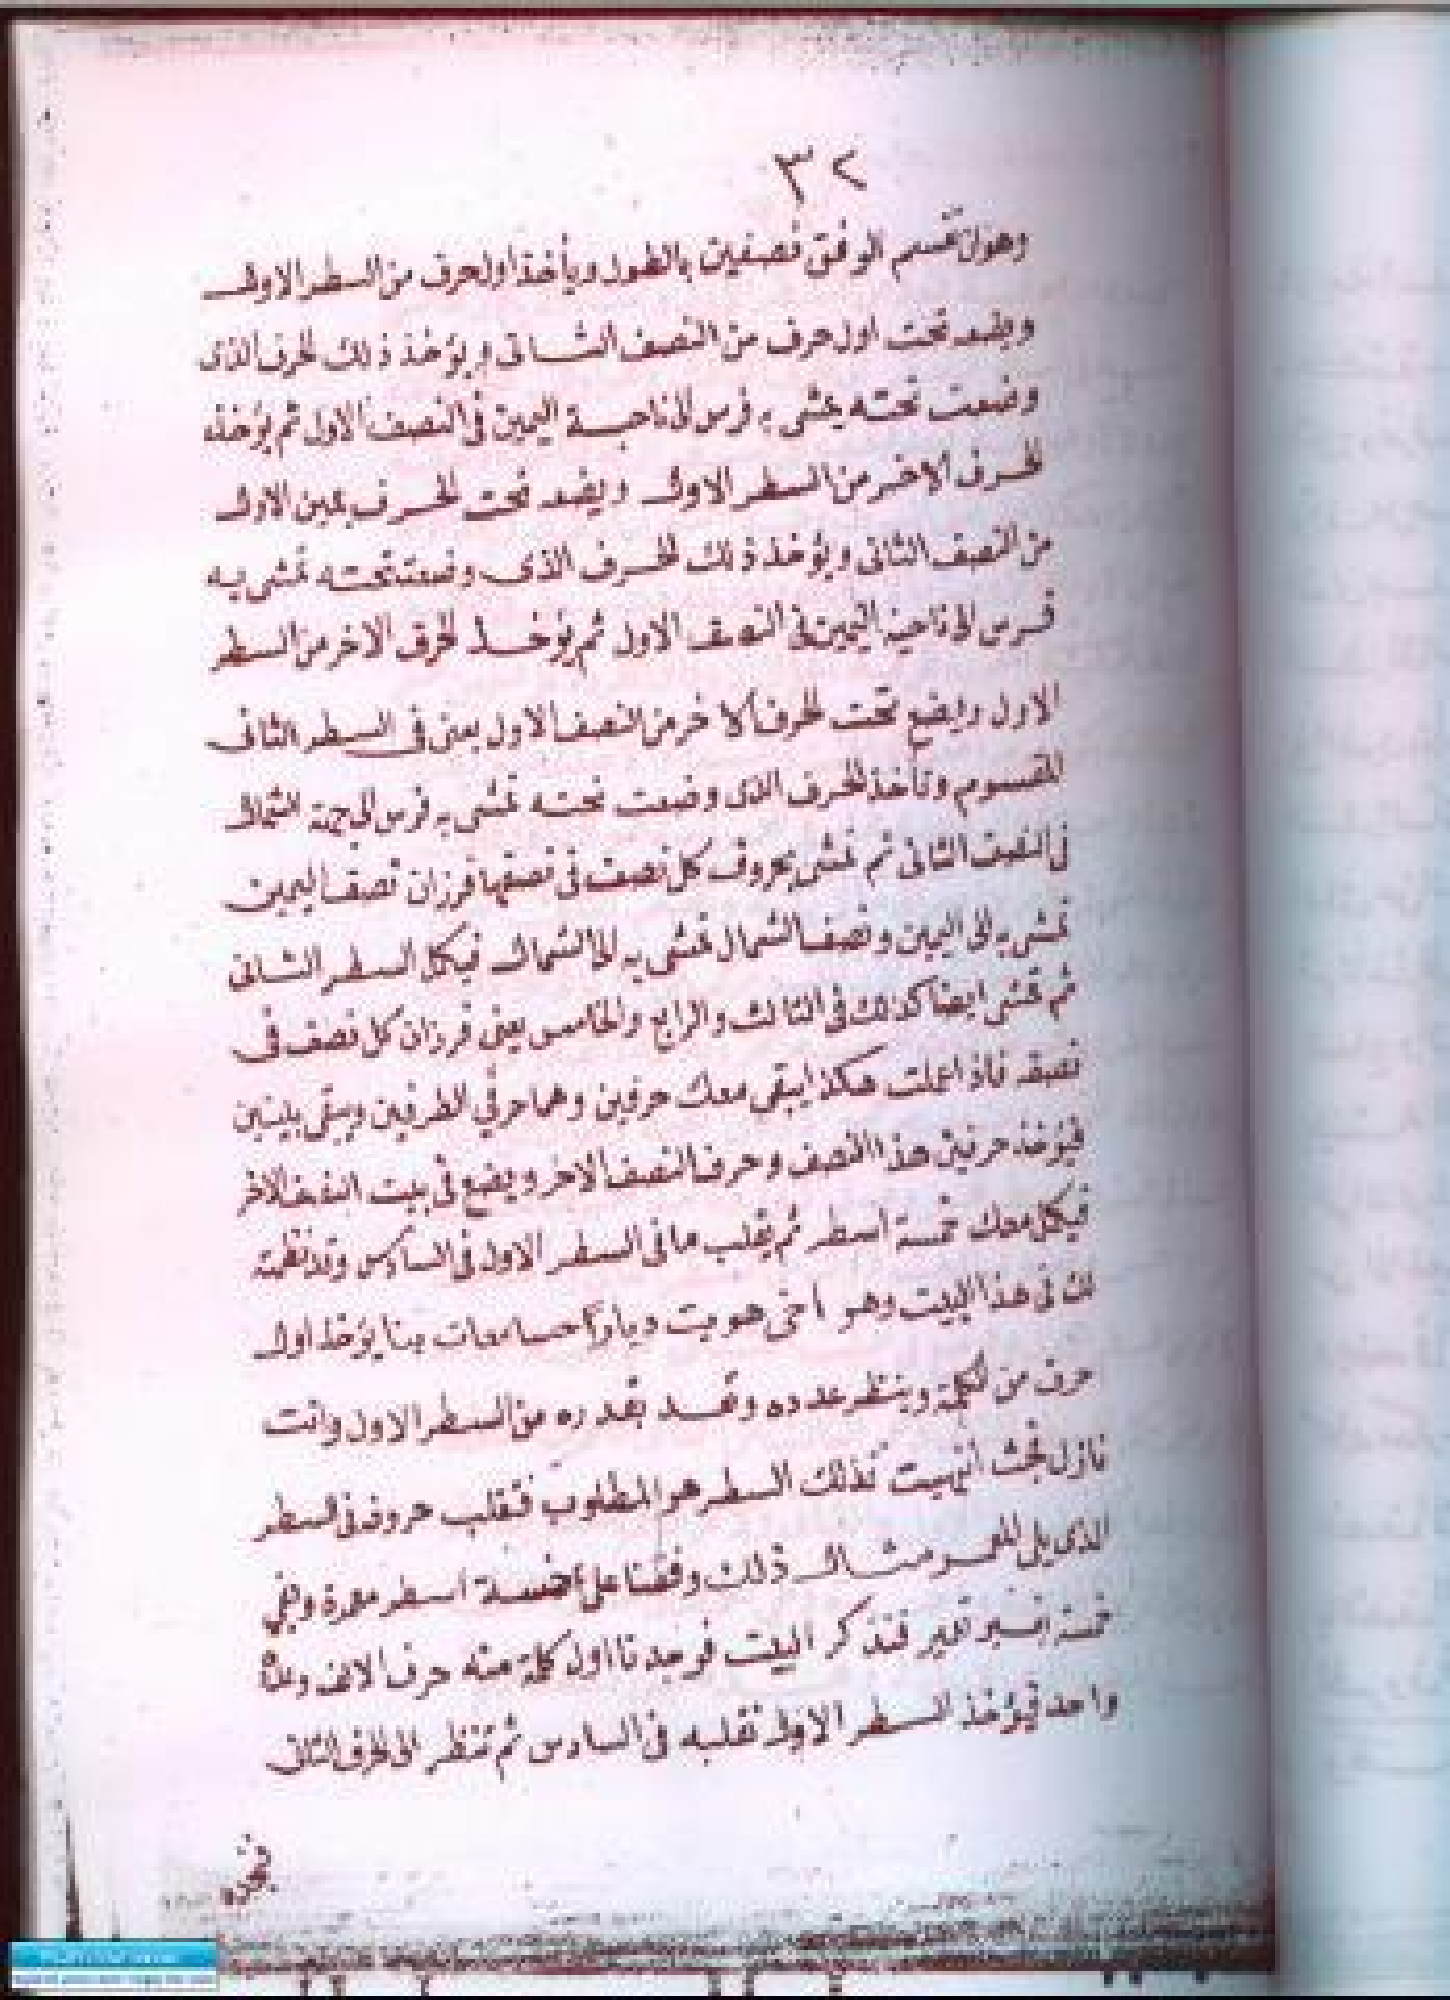 ٣٢
وهو ان تقسم الوفق نصفين بالطول ويأخذ اول حرف من السطر الاول
ويضعه تحت اول حرف من النصف الثانى ويؤخذ ذلك الحرف الذى
وضعت تحته يمشى به فرس الى ناحية اليمين فى النصف الاول ثم يؤخذ
الحرف الاخر من السطر الاول ويضعه تحت الحرف يمين الاول
من النصف الثانى ويؤخذ ذلك الحرف الذى وضعت تحته تمشى به
فرس الى ناحية اليمين فى النصف الاول ثم يؤخذ الحرف الاخر من السطر
الاول ويضع تحت الحرف الاخر من النصف الاول يعنى فى السطر الثانى
المقسوم وتأخذ الحرف الذى وضعت تحته تمشى به فرس الى جهة الشمال
فى النصف الثانى ثم تمشى بحروف كل نصف فى نصفها فرزان نصف اليمين
تمشى به الى اليمين ونصف الشمال تمشى به الى الشمال فيكمل السطر الثانى
ثم تمشى ايضا كذلك فى الثالث والرابع والخامس يعنى فرزان كل نصف فى
نصفه فاذا عملت هكذا يبقى معك حرفين وهما حرفي الطرفين ويبقى بيتين
فيؤخذ حرفين هذا النصف وحرف النصف الاخر ويضع فى بيت النصف الاخر
فيكمل معك خمسة اسطر ثم يقلب ما فى السطر الاول فى السادس وقد نظمته
لك فى هذا البيت وهو اخى هويت بنا يؤخذ اول
حرف من الكلمة وينظر عدده وتعد بقدره من السطر الاول وانت
نازل فحيث انتهيت فذلك السطر هو المطلوب فتقلب حروفه فى السطر
الذى يلى المعمر مثال ذلك وقفنا على خمسة اسطر معمرة وبقي
خمسة بغير تعمير فنذكر البيت فوجدنا اول كلمة منه حرف الالف وعدها
واحد فيؤخذ السطر الاول تقلبه فى السادس ثم تنظر الى الحرف الثانى